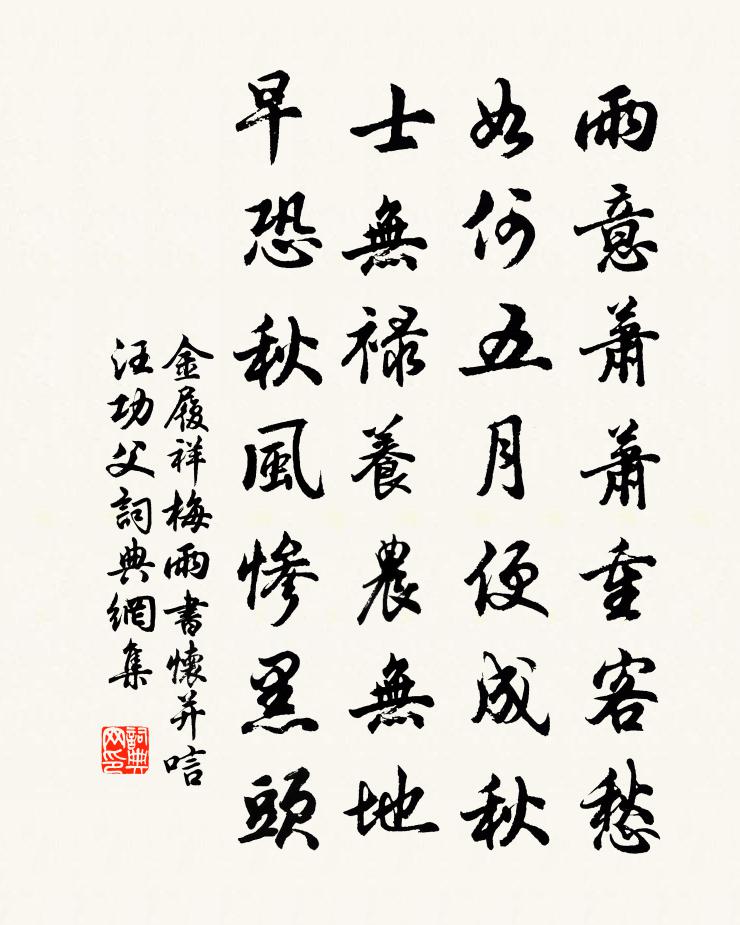 雨意蕭蕭重客愁
如何五月便成秋
士無祿養農無地
早恐秋風慘黑頭
金履祥梅雨書懷并唁
汪功父詞典網集
詞典
网印